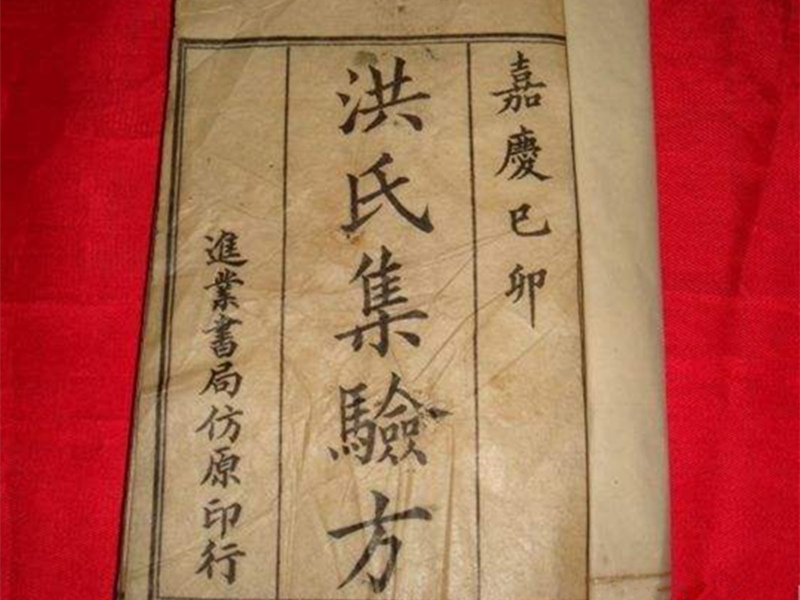 嘉慶已卯
洪氏集驗方
進業書局仿原印行